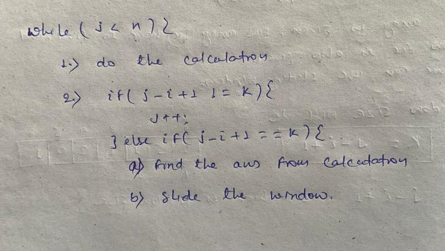 while ( j < n ) {
1.) do the calculation
2) if( j-i+1 != k){
j++;
} else if( j-i+1 == k){
a) find the ans from calculation
b) slide the window.